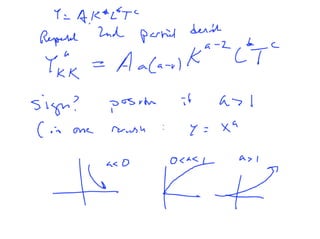 Y = A K^a L^b T^c
Repeated 2nd partial deriv
Y''_KK = A a(a-1) K^(a-2) L^b T^c
sign? positive if a > 1
(in one : Y = X^a
a<0 0<a<1 a>1